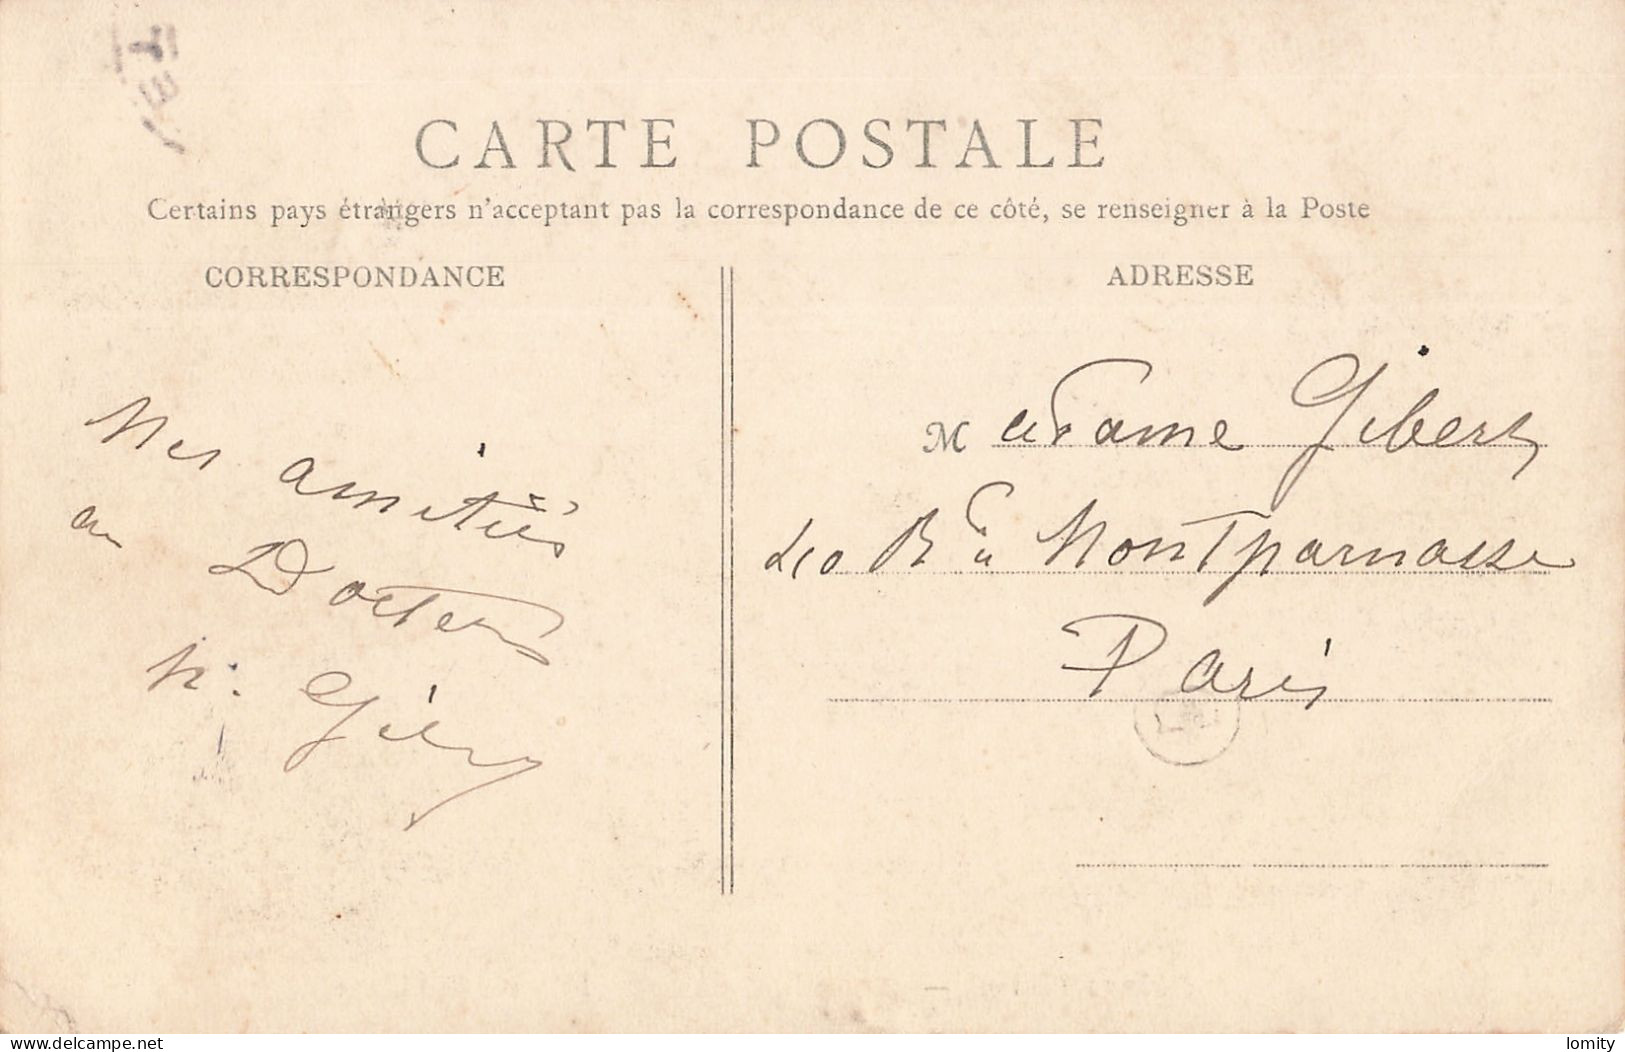 CARTE POSTALE
Certains pays étrangers n'acceptant pas la correspondance de ce côté, se renseigner à la Poste
CORRESPONDANCE
ADRESSE
Mes amitiés
au Docteur
Madame Gibert
Bd Montparnasse
Paris
www.delcampe.net
lomity